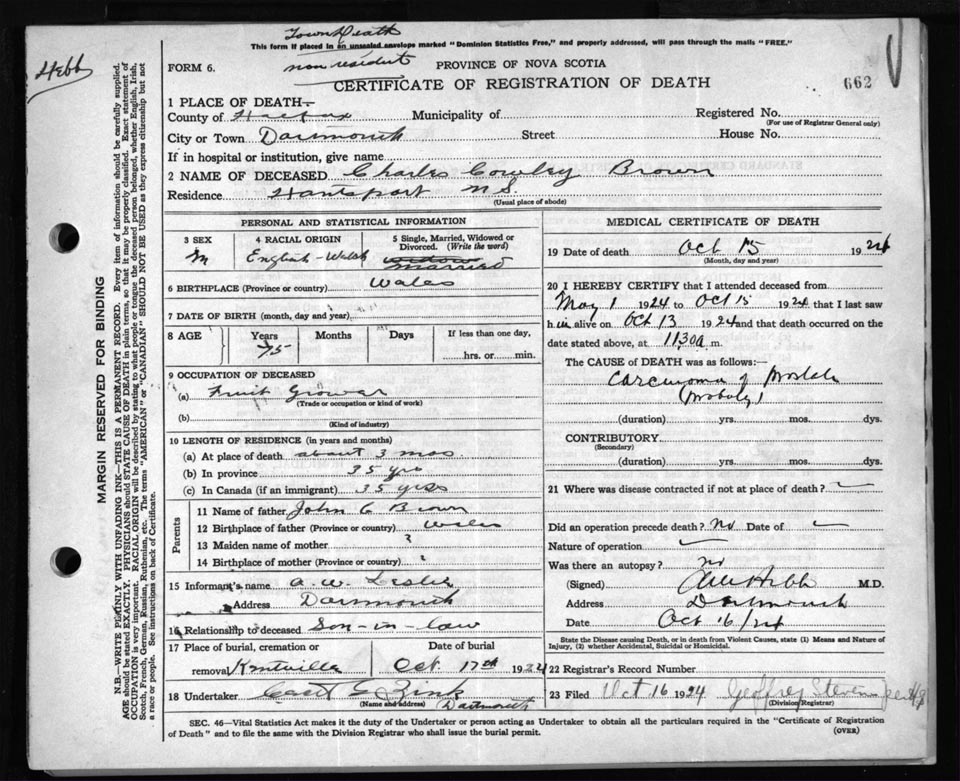 Town Death
This form if placed in an unsealed envelope marked "Dominion Statistics Free," and properly addressed, will pass through the mails "FREE."
Hebb
non resident
FORM 6.
PROVINCE OF NOVA SCOTIA
CERTIFICATE OF REGISTRATION OF DEATH
662
1 PLACE OF DEATH—
County of Halifax Municipality of Registered No.
(For use of Registrar General only)
City or Town Dartmouth Street House No.
If in hospital or institution, give name
2 NAME OF DECEASED Charles Cowley Brown
Residence Hantsport N.S.
(Usual place of abode)
PERSONAL AND STATISTICAL INFORMATION
3 SEX 4 RACIAL ORIGIN 5 Single, Married, Widowed or Divorced. (Write the word)
M English-Welsh widow married
6 BIRTHPLACE (Province or country) Wales
7 DATE OF BIRTH (month, day and year)
8 AGE Years Months Days If less than one day,
75 hrs. or min.
9 OCCUPATION OF DECEASED
(a) Fruit Grower
(Trade or occupation or kind of work)
(b)
(Kind of industry)
10 LENGTH OF RESIDENCE (in years and months)
(a) At place of death about 3 mos
(b) In province 35 yrs
(c) In Canada (if an immigrant) 35 yrs
Parents
11 Name of father John C Brown
12 Birthplace of father (Province or country) Wales
13 Maiden name of mother ?
14 Birthplace of mother (Province or country) ?
15 Informant's name A. W. Leslie
Address Dartmouth
16 Relationship to deceased Son-in-law
17 Place of burial, cremation or removal Kentville
Date of burial Oct 17th 1924
18 Undertaker Zink
(Name and address) Dartmouth
MEDICAL CERTIFICATE OF DEATH
19 Date of death Oct 15 1924
(Month, day and year)
20 I HEREBY CERTIFY that I attended deceased from
May 1 1924 to Oct 15 1924 that I last saw
him alive on Oct 13 1924 and that death occurred on
date stated above, at 11.30 a m.
The CAUSE of DEATH was as follows:—
Carcinoma of Prostate
(Probably)
(duration) yrs. mos. dys.
CONTRIBUTORY
(Secondary)
(duration) yrs. mos. dys.
21 Where was disease contracted if not at place of death? —
Did an operation precede death? No Date of —
Nature of operation —
Was there an autopsy? no
(Signed) Hebb M.D.
Address Dartmouth
Date Oct 16/24
State the Disease causing Death, or in death from Violent Causes, state (1) Means and Nature of
Injury, (2) whether Accidental, Suicidal or Homicidal.
22 Registrar's Record Number
23 Filed Oct 16 1924 Geoffrey Stevens
(Division Registrar)
SEC. 46—Vital Statistics Act makes it the duty of the Undertaker or person acting as Undertaker to obtain all the particulars required in the "Certificate of Registration
of Death" and to file the same with the Division Registrar who shall issue the burial permit.
(OVER)
MARGIN RESERVED FOR BINDING
N.B.—WRITE PLAINLY WITH UNFADING INK—THIS IS A PERMANENT RECORD. Every item of information should be carefully supplied.
AGE should be stated EXACTLY. PHYSICIANS should STATE CAUSE OF DEATH in plain terms, so that it may be properly classified. Exact statement of
OCCUPATION is very important. RACIAL ORIGIN will be described by stating to what people or tongue the deceased person belonged, whether English, Irish,
Scotch, French, German, Russian, Ruthenian, etc. The terms "AMERICAN" or "CANADIAN" SHOULD NOT BE USED as they express citizenship but not
a race or people. See instructions on back of Certificate.